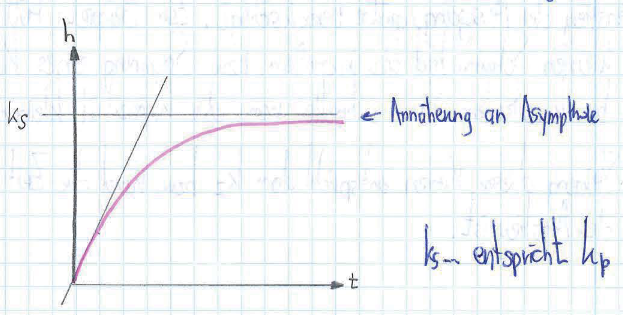 h
ks
← Annäherung an Asymptote
t
ks… entspricht kp